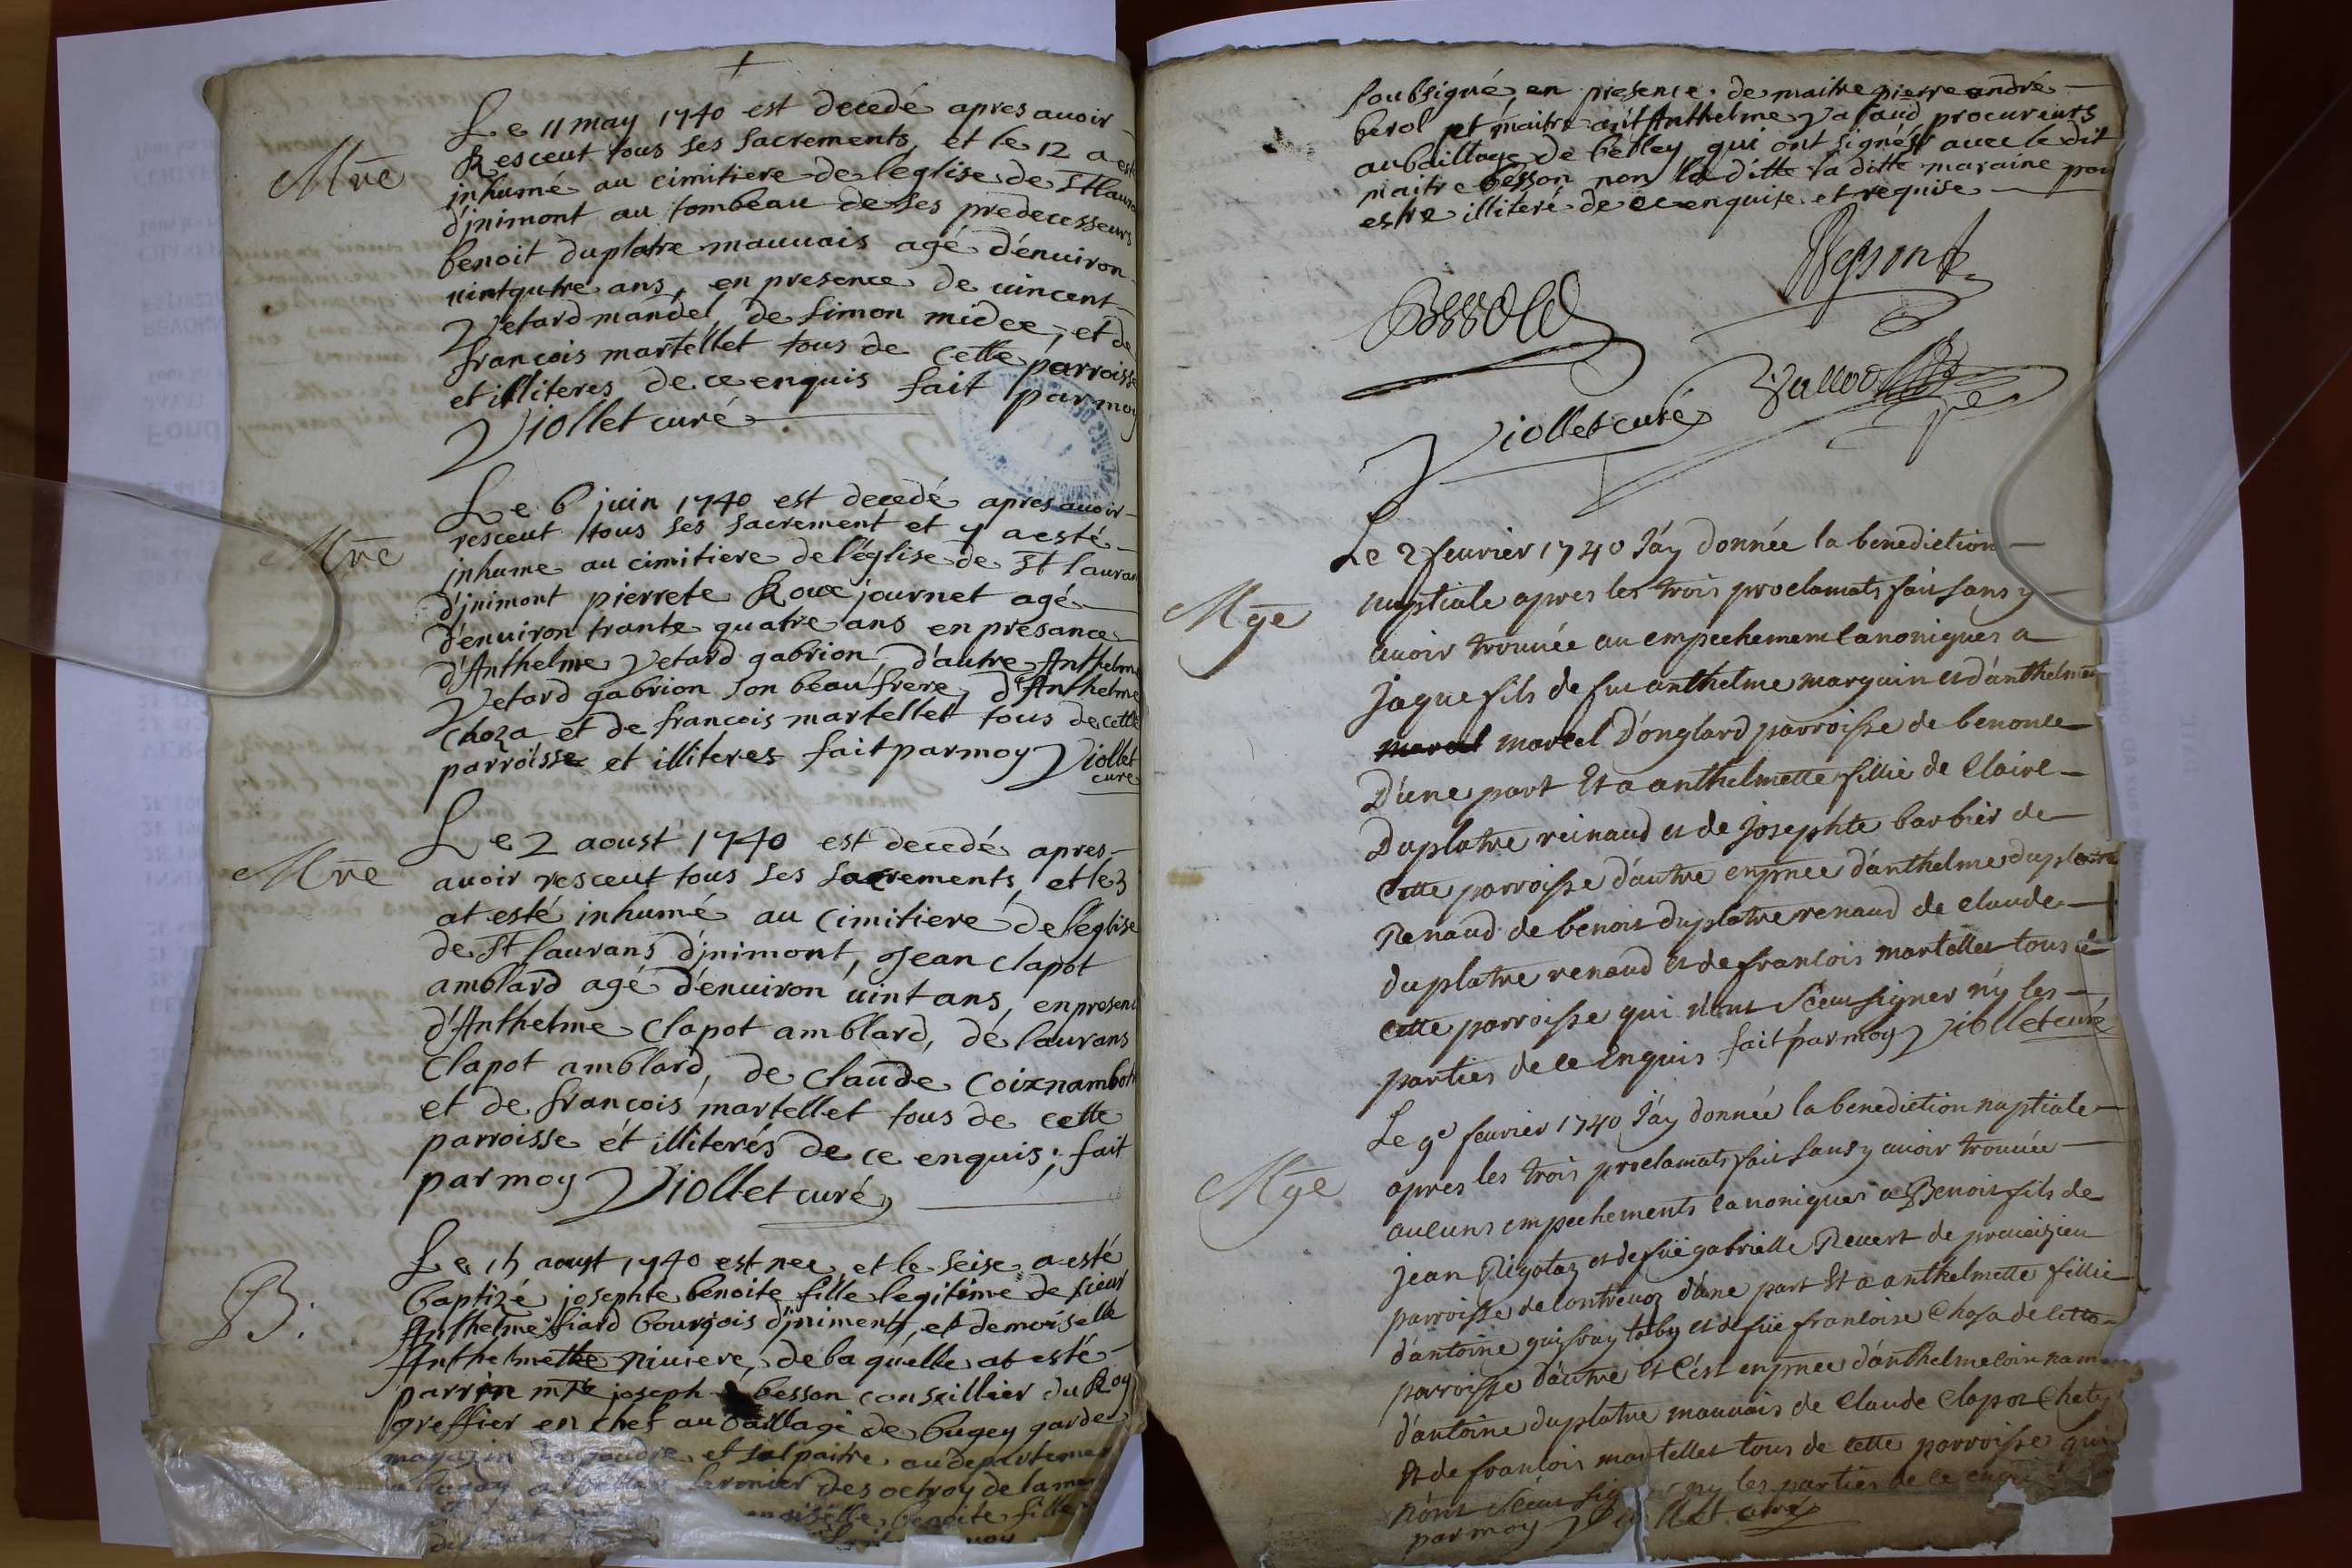 Le 11 may 1740 est decedé apres avoir
Mre
Resceut tous ses sacrements, et le 12 a esté
inhumé au cimitiere de leglise de St Lauran
d'jnimont au tombeau de ses predecesseurs
benoit duplatre mauuais agé d'énuiron
uintqutre ans, en presence de uincent
Vetard mandel, de simon midee, et de
francois martellet tous de cette parroisse
et illiteres de ce enquis fait par moy
Viollet curé
Le 6 juin 1740 est decedé apres auoir
Mre
resceut tous ses sacrement et y a esté
jnhume au cimitiere de l'église de St lauran
d'jnimont pierrete Roux journet agé
d'enuiron trante quatre ans en présance
d'Anthelme Vetard gabrion, d'autre Anthelme
Vetard gabrion son beaufrere, d'Anthelme
choza et de francois martellet tous de cette
parroisse et illiteres fait par moy Viollet
curé
Le 2 aoust 1740 est decedé apres
Mre
avoir resceut tous ses sacrements, et le 3
at esté inhumé au cimitiere de l'eglise
de St laurans d'jnimont, Jean clapot
amblard agé d'énuiron uint ans, en presen
d'Anthelme Clapot amblard, de laurans
Clapot amblard, de claude Coixnambot
et de francois martellet tous de cette
parroisse ét illiterés de ce enquis; fait
par moy Viollet curé
Le 15 aoust 1740 est nee et le seise a esté
B.
baptizé josephte benoite fille legitime de sieur
Anthelme fiard bourgois d'jniment, et demoiselle
Anthelmette riuiere, de laquelle at esté
parrin mtre joseph besson conseillier du Roy
greffier en chef au baillage de bugey garde
magazin poudre et salpaitre au departeme
bugey fermier des octroy de la
benoite fille
moy
soubsigné, en presence de maitre pierre andré
berol et maitre Anthelme Valaud procureurs
au baillage de belley qui ont signés auec le dit
maitre besson non la ditte la ditte maraine pou
estre illiteré de ce enquise et requise
Viollet curé
Le 2 feurier 1740 J'ay donnée la benediction
Mge
nuptiale apres les trois proclamats fais sans y
auoir trouuée au empechement Canoniques a
jaque fils de fu anthelme marguin et d'anthelme
marcel D'onglard parroisse de benonce
D'une part Et a anthelmette fillie de Claire
Duplatre reinaud et de josephte barbier de
Cette parroisse d'autre en pnce d'anthelme duplatre
Renaud de benoit duplatre renaud de claude
duplatre renaud et de francois martellet tous de
cette parroisse qui n'ont sceu signer n'y les
parties de ce Enquis fait par moy Viollet curé
Le 9e feurier 1740 J'ay donnée la benediction nuptiale
Mge
apres les trois proclamats fais sans y auoir trouuée
aucuns empechements canoniques a Benoit fils de
jean Rigotaz et de fuë gabrielle Reuert de proueizieu
parroisse de Contreuoz d'une part Et a anthelmette fillie
d'antoine guifray taby et de fuë francoise Chosa de cette
parroisse d'autre et C'est en pnce d'anthelme Coixnam
d'antoine duplatre mauuais de Claude Clapot Chety
et de francois martellet tous de cette parroisse qui
n'ont sceu sig ny les parties de ce enqui
par moy Viollet curé